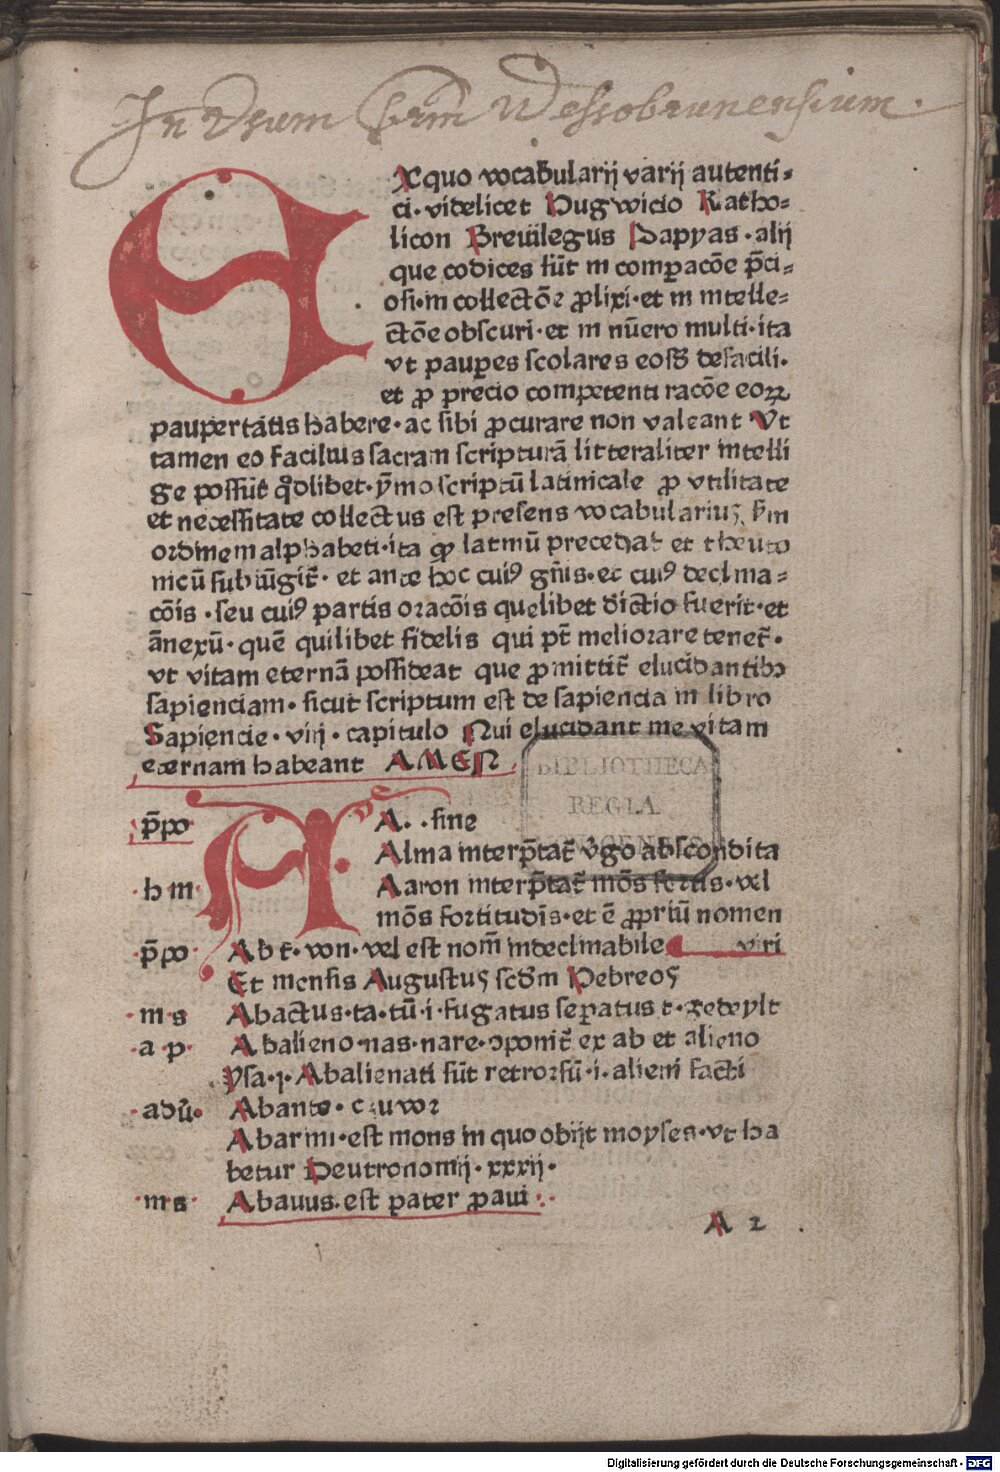 In Usum Frm Wessobrunensium.
EX quo vocabularij varij autenti-
ci· videlicet Hugwicio Katho-
licon Breuilegus Papyas· alij
que codices sūt in comparacōe p̄ci-
osi· in collectōe ꝓlixi· et in intelle-
ctōe obscuri· et in nūero multi· ita
vt pauꝑes scolares eosdē defacili·
et ꝓ precio competenti racōe eoꝝ
paupertatis habere· ac sibi ꝓcurare non valeant Vt
tamen eo facilius sacram scripturā litteraliter intelli
ge possint̄ qdlibet· ȳmo scriptū latinicale ꝓ vtilitate
et necessitate collectus est presens vocabularius, km
ordinem alphabeti· ita ꝙ latinū precedat et theuto
nicū subiūgit̄· et ante hoc cuiꝰ gn̄is· et cuiꝰ declina-
cōis· seu cuiꝰ partis oracōis quelibet dictio fuerit· et
ānexū· quē quilibet fidelis qui pt̄ meliorare tenet̄·
vt vitam eternā possideat que ꝓmittit̄ elucidantibꝫ
sapienciam· sicut scriptum est de sapiencia in libro
Sapiencie· viij· capitulo Qui elucidant me vitam
eternam habeant AMEN
BIBLIOTHECA
REGIA
MONACENSIS
A· ·sine
p̄po
Alma interp̄tat̄ v̄go abscondita
h m Aaron interp̄tat̄ mōs fortis· vel
mōs fortitudīs· et ē ꝓpriū nomen
p̄po· Ab t̄· von· vel est nom̄ indeclinabile viri
Et mensis Augustus scdm Hebreos
·m·s Abactus· ta· tū· i· fugatus seꝑatus t·
·a·p· Abalieno· nas· nare· ↄponit̄ ex ab et alieno
Ysa· j· Abalienati sūt retrorsū· i· alieni facti
·adū· Abante· czuvor
Abarim· est mons in quo obijt moyses· vt ha
betur Deutronomij· xxxij·
·ms· Abauus· est pater ꝓaui·
A 2
Digitalisierung gefördert durch die Deutsche Forschungsgemeinschaft - DFG